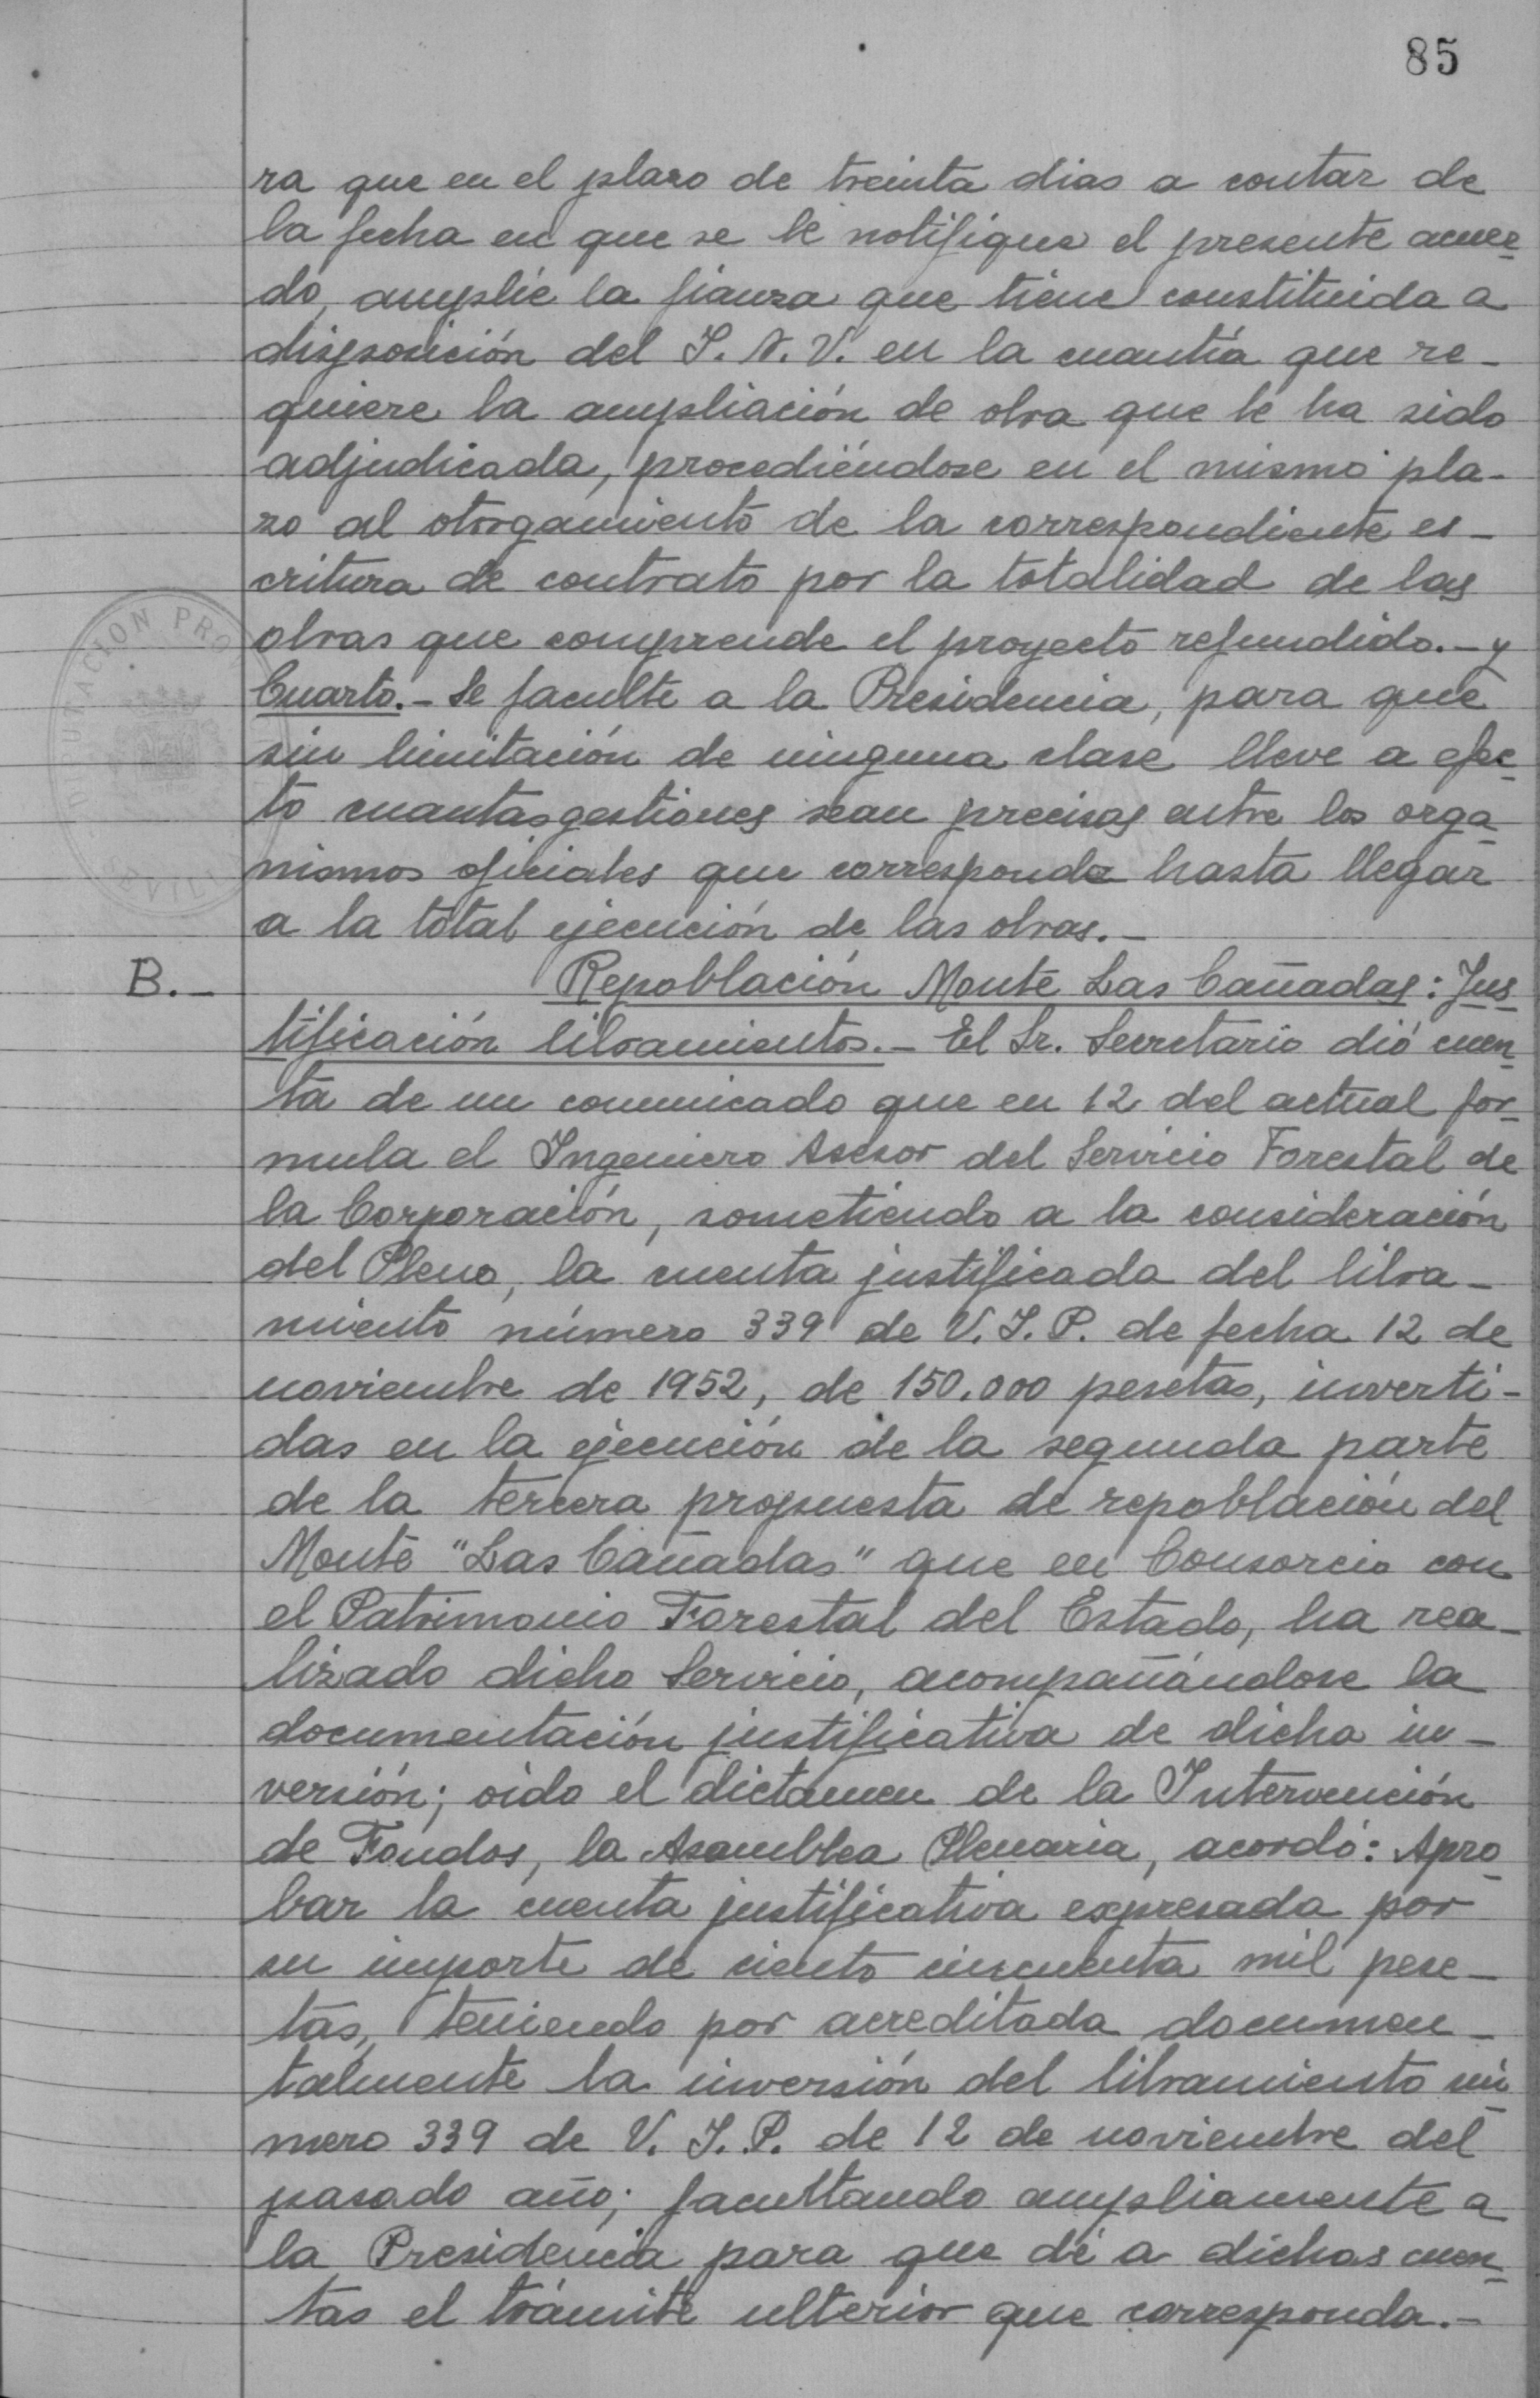 85
ra que en el plazo de treinta dias a contar de
la fecha en que se le notifique el presente acuer-
do, amplíe la fianza que tiene constituida a
disposición del I. N. V. en la cuantía que re-
quiere la ampliación de obra que le ha sido
adjudicada, procediéndose en el mismo pla-
zo al otorgamiento de la correspondiente es-
critura de contrato por la totalidad de las
obras que comprende el proyecto refundido.- y
Cuarto.- Se faculte a la Presidencia, para que
sin limitación de ninguna clase lleve a efec-
to cuantas gestiones sean precisas entre los orga-
nismos oficiales que corresponda hasta llegar
a la total ejecución de las obras.-
B.- Repoblación Monte Las Cañadas: Jus-
tificación libramientos.- El Sr. Secretario dió cuen-
ta de un comunicado que en 12 del actual for-
mula el Ingeniero Asesor del Servicio Forestal de
la Corporación, sometiendo a la consideración
del Pleno, la cuenta justificada del libra-
miento número 339 de V. I. P. de fecha 12 de
noviembre de 1952, de 150.000 pesetas, inverti-
das en la ejecución de la segunda parte
de la tercera propuesta de repoblación del
Monte "Las Cañadas" que en Consorcio con
el Patrimonio Forestal del Estado, ha rea-
lizado dicho Servicio, acompañándose la
documentación justificativa de dicha in-
versión; oido el dictamen de la Intervención
de Fondos, la Asamblea Plenaria, acordó: Apro-
bar la cuenta justificativa expresada por
su importe de ciento cincuenta mil pese-
tas, teniendo por acreditada documen-
talmente la inversión del libramiento nú-
mero 339 de V. I. P. de 12 de noviembre del
pasado año; facultando ampliamente a
la Presidencia para que dé a dichas cuen-
tas el trámite ulterior que corresponda.-